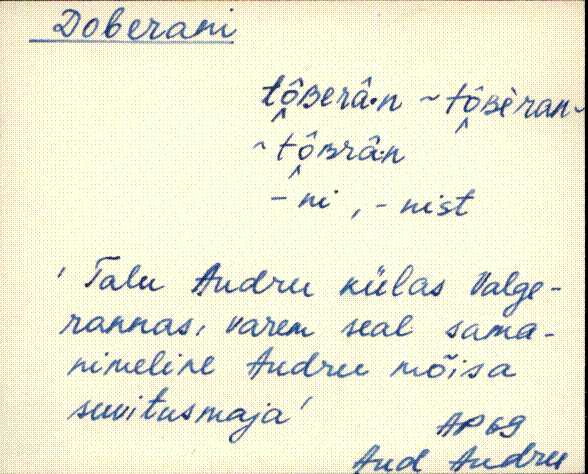 Doberani
tôʙerâ·n ~ tôʙèran ~
~ tôʙrâ·n
- ni, - nist
' Talu Audru külas Valge-
rannas, varem seal sama-
nimeline Audru mõisa
suvitusmaja'
AP 69
Aud Audru